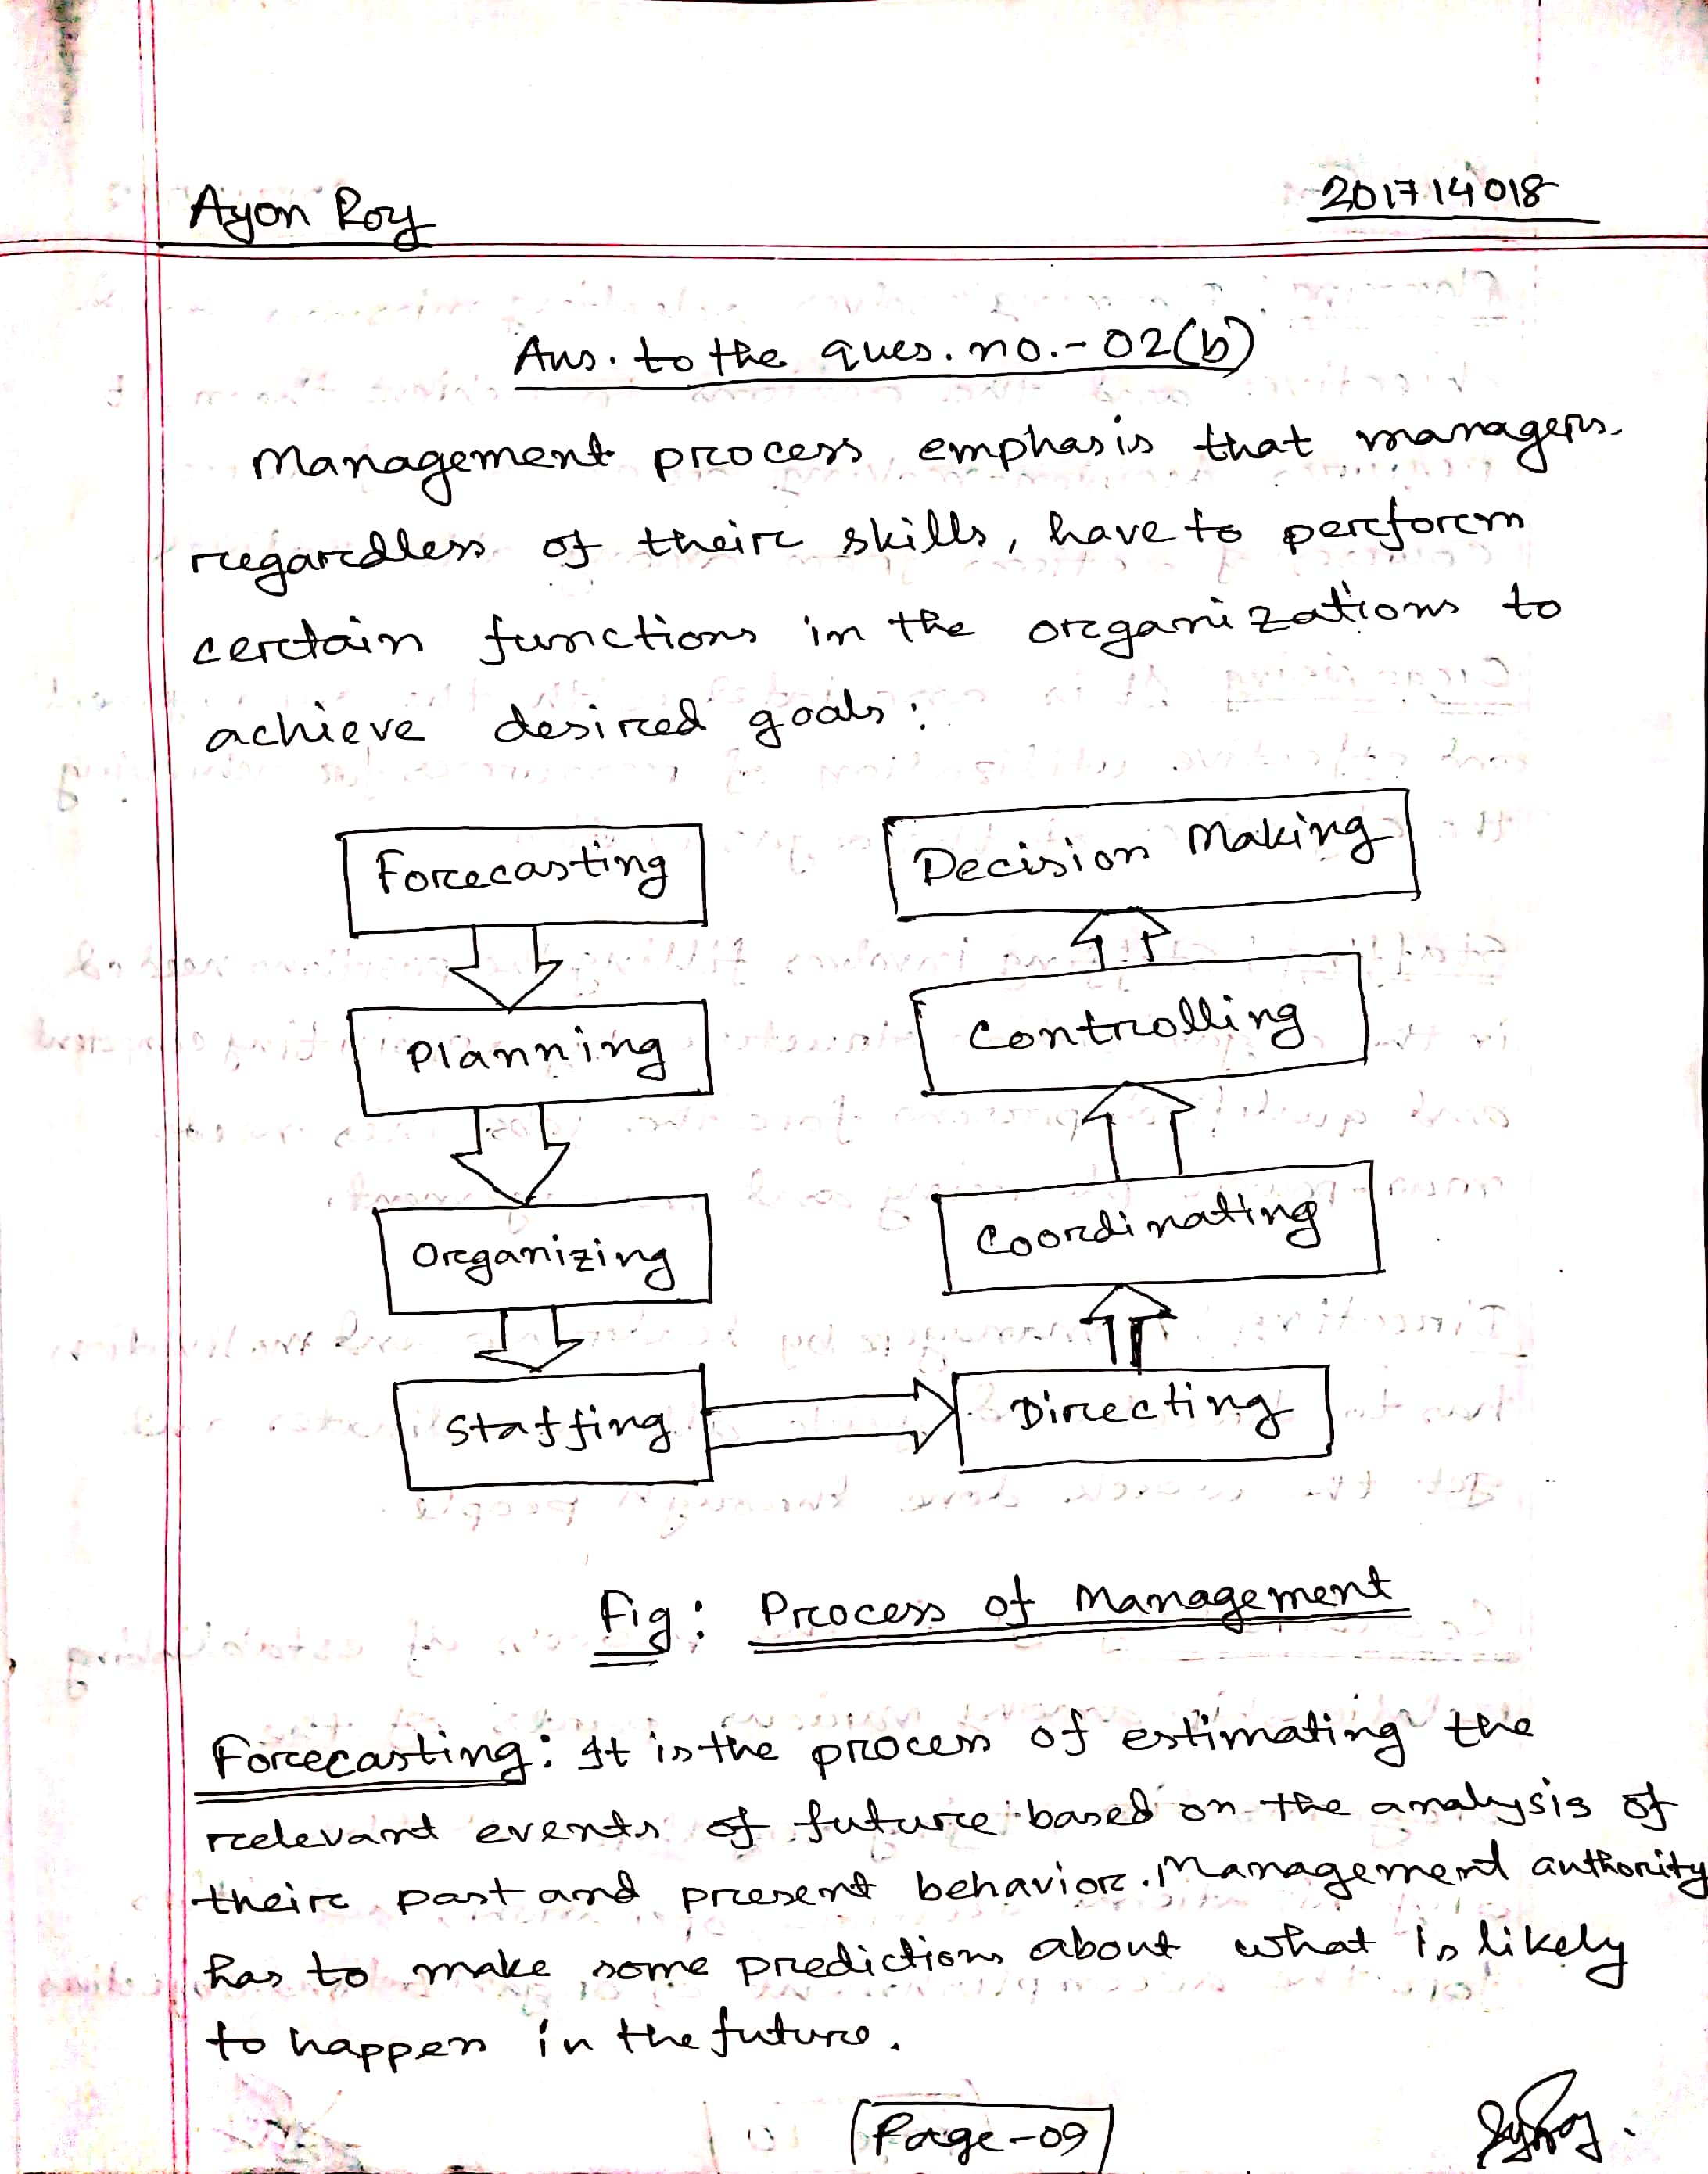 Ayon Roy
201714018
Ans. to the ques. no.- 02(b)
Management process emphasis that managers
regardless of their skills, have to perform
certain functions in the organizations to
achieve desired goals :
Forecasting
Decision Making
Planning
Controlling
Organizing
Coordinating
Staffing
Directing
Fig : Process of Management
Forecasting : It is the process of estimating the
relevant events of future based on the analysis of
their past and present behavior. Management authority
has to make some predictions about what is likely
to happen in the future.
Page-09